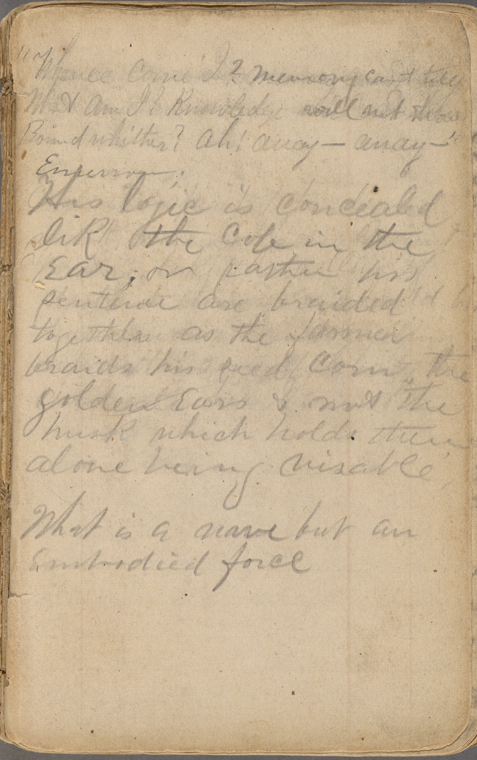 Whence came I? Memory can't tell
What am I? Knowledge will not show
Bound whither? Ah! away – away –"
Emerson.
His logic is concealed
like the cob in the
Ear, or rather his
sentence are braided
together as the farmer
braids his seed corn, the
golden Ears & not the
husk which holds them
alone being visable
What is a name but an
Embodied force